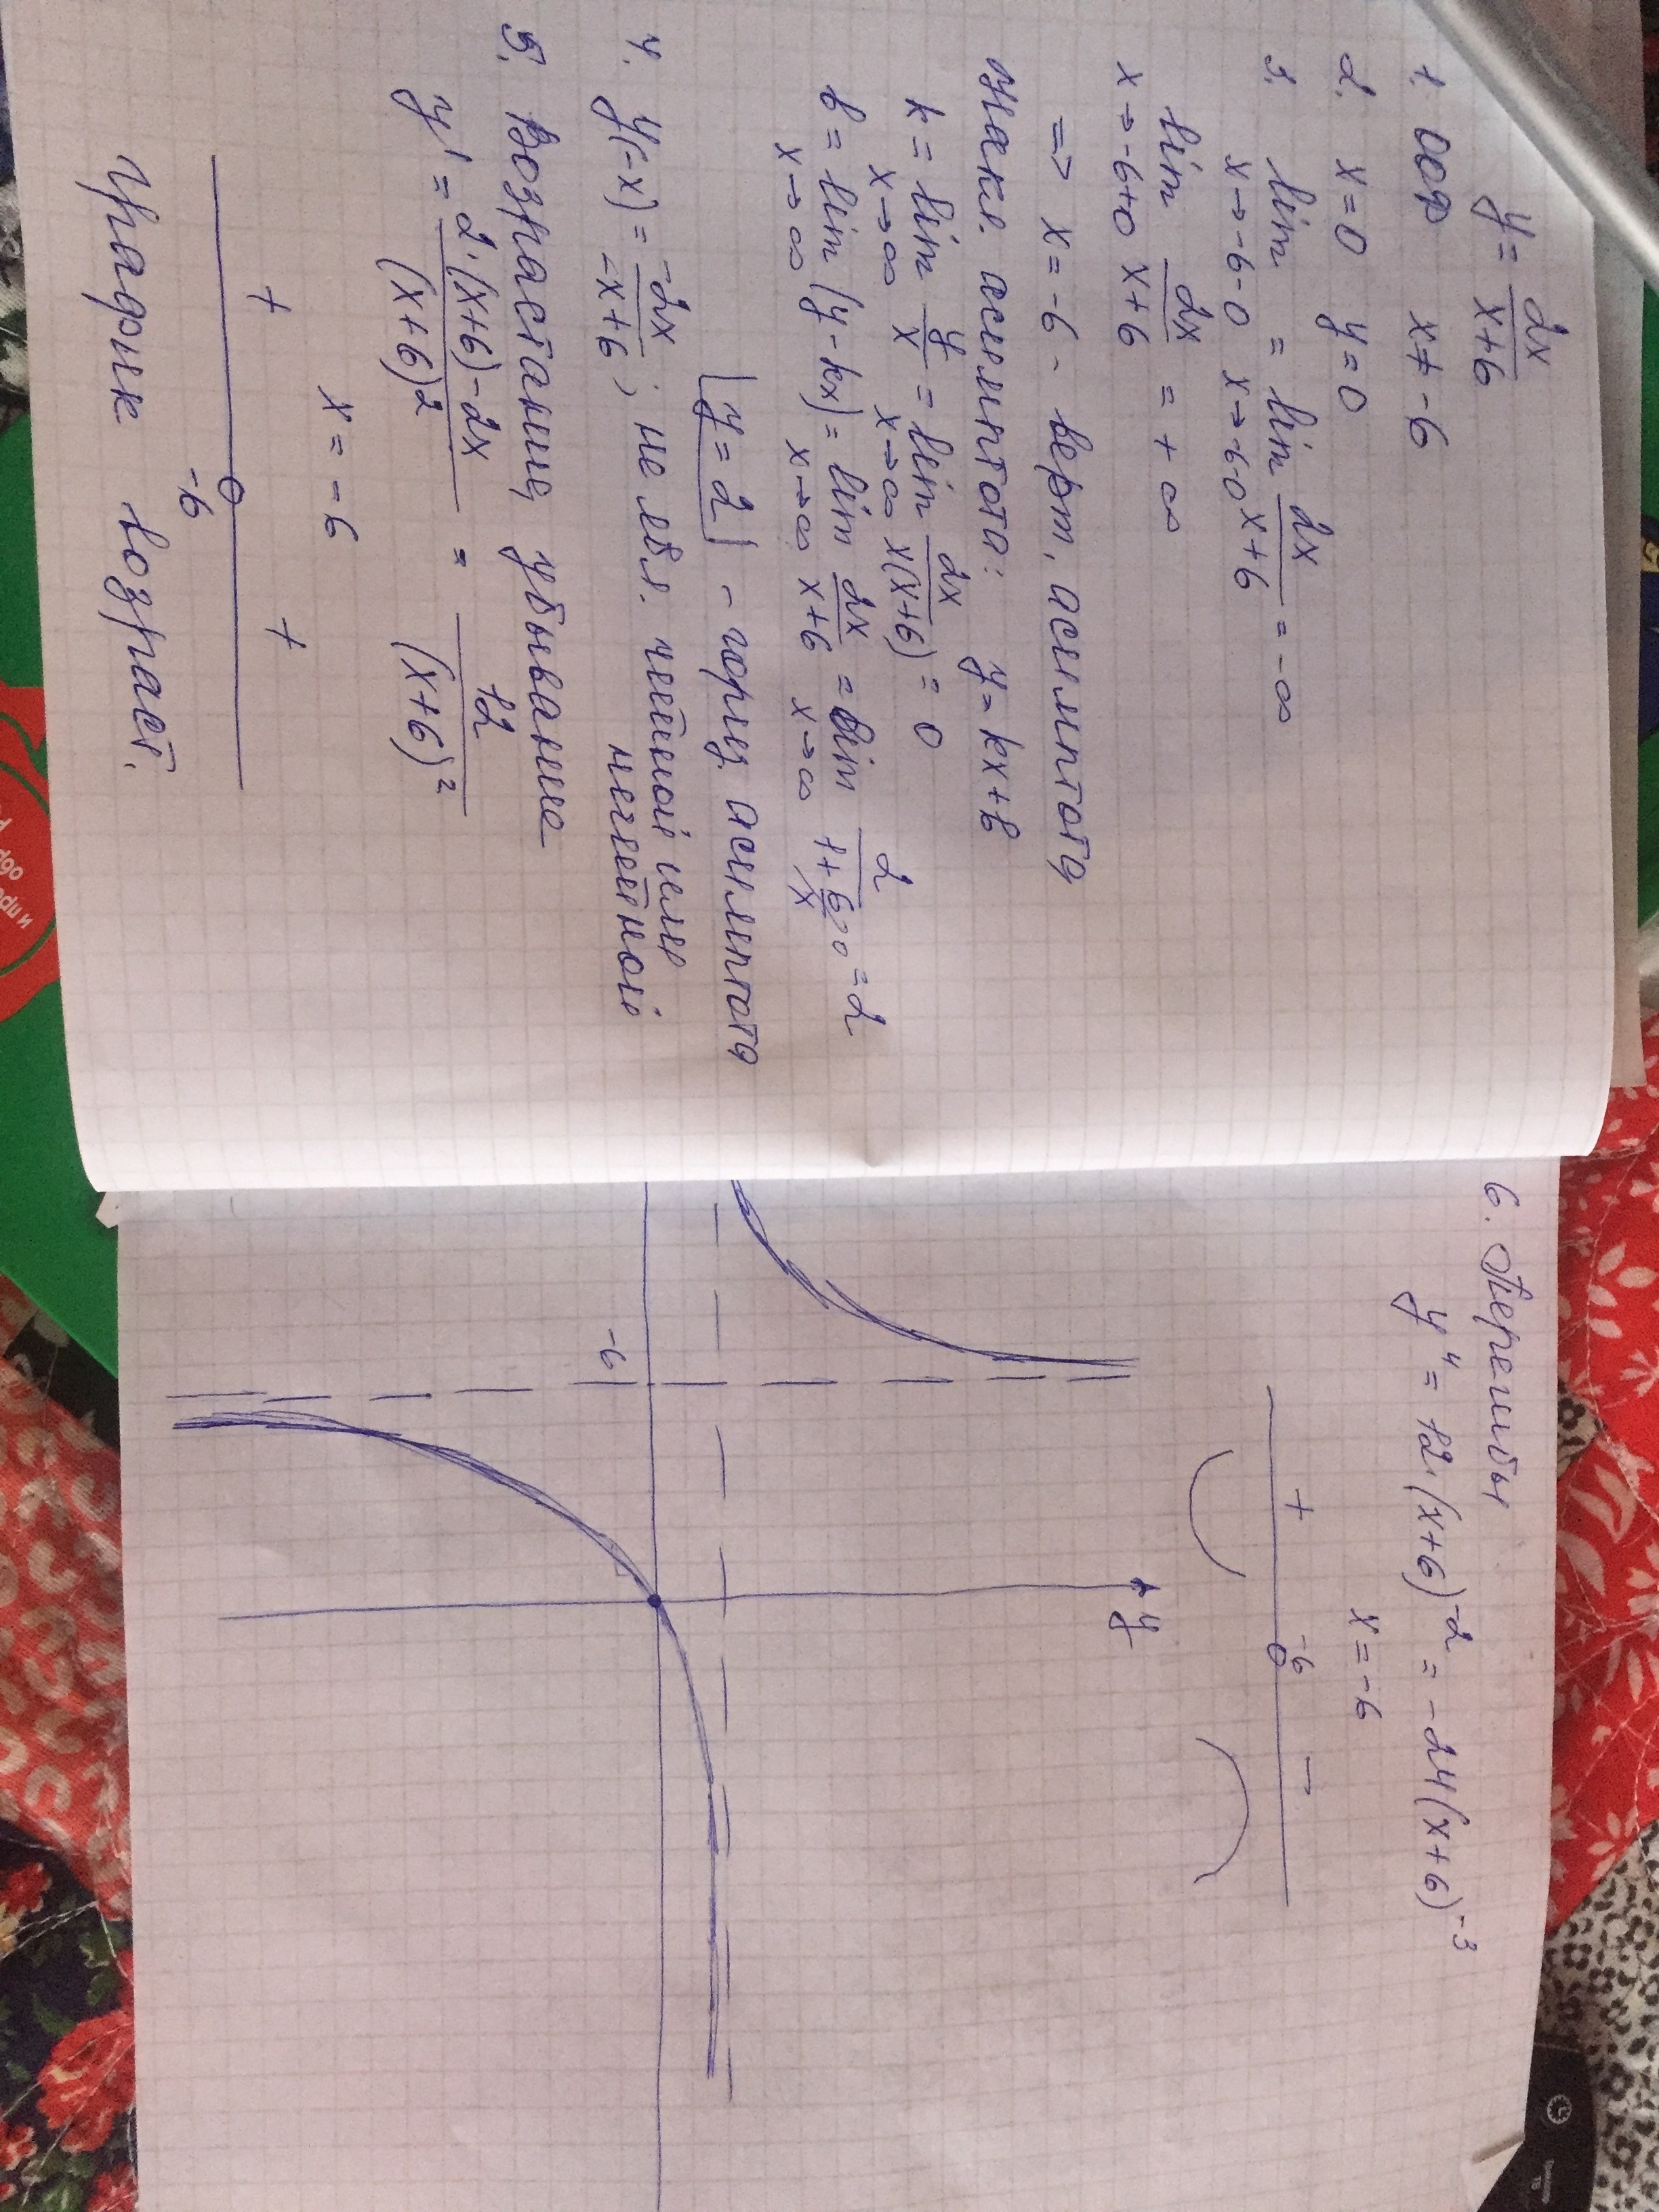 y = 2x/(x+6)
1. ООФ x ≠ -6
2. x=0 y=0
3. lim x→-6-0 = lim x→-6-0 2x/(x+6) = -∞
lim x→-6+0 2x/(x+6) = +∞
=> x = -6 - верт. асимптота
Накл. асимптота: y = kx+b
k = lim x→∞ y/x = lim x→∞ 2x/(x(x+6)) = 0
b = lim x→∞ (y-kx) = lim x→∞ 2x/(x+6) = lim x→∞ 2/(1+6/x→0) = 2
y=2 - гориз. асимптота
4. y(-x) = -2x/(-x+6); не явл. чётной или
нечётной
5. Возрастание, убывание
y' = (2·(x+6)-2x)/(x+6)² = 12/(x+6)²
x = -6
+ +
-6
График возраст.
6. Перегибы
y" = 12·(x+6)⁻² = -24(x+6)⁻³
x = -6
+ -6 -
y
-6